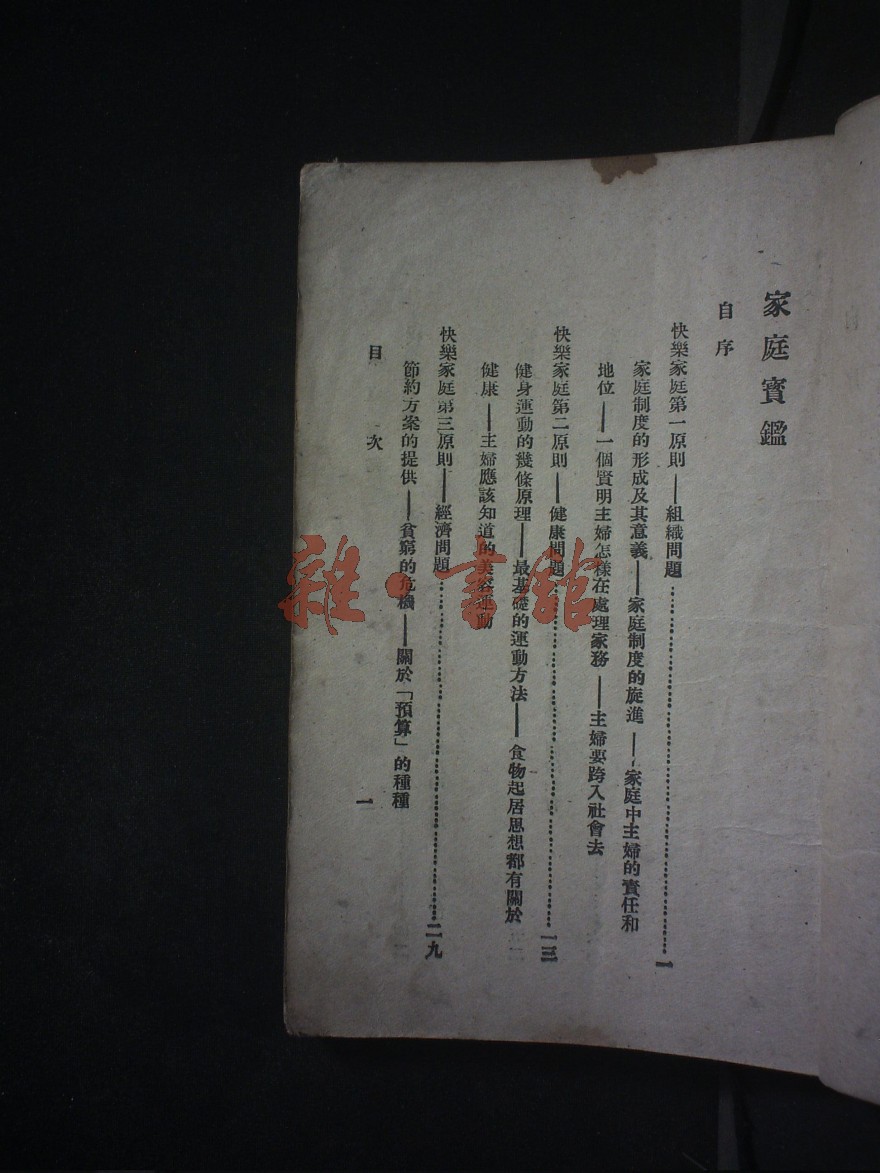 家庭寶鑑
自序
快樂家庭第一原則——組織問題……一
家庭制度的形成及其意義——家庭制度的旋進——家庭中主婦的責任和
地位——一個賢明主婦怎樣在處理家務——主婦要跨入社會去
快樂家庭第二原則——健康問題……一三
健身運動的幾條原理——最基礎的運動方法——食物起居思想都有關於
健康——主婦應該知道的美容運動
快樂家庭第三原則——經濟問題……二九
節約方案的提供——貧窮的危機——關於「預算」的種種
目次
一
雜·書館